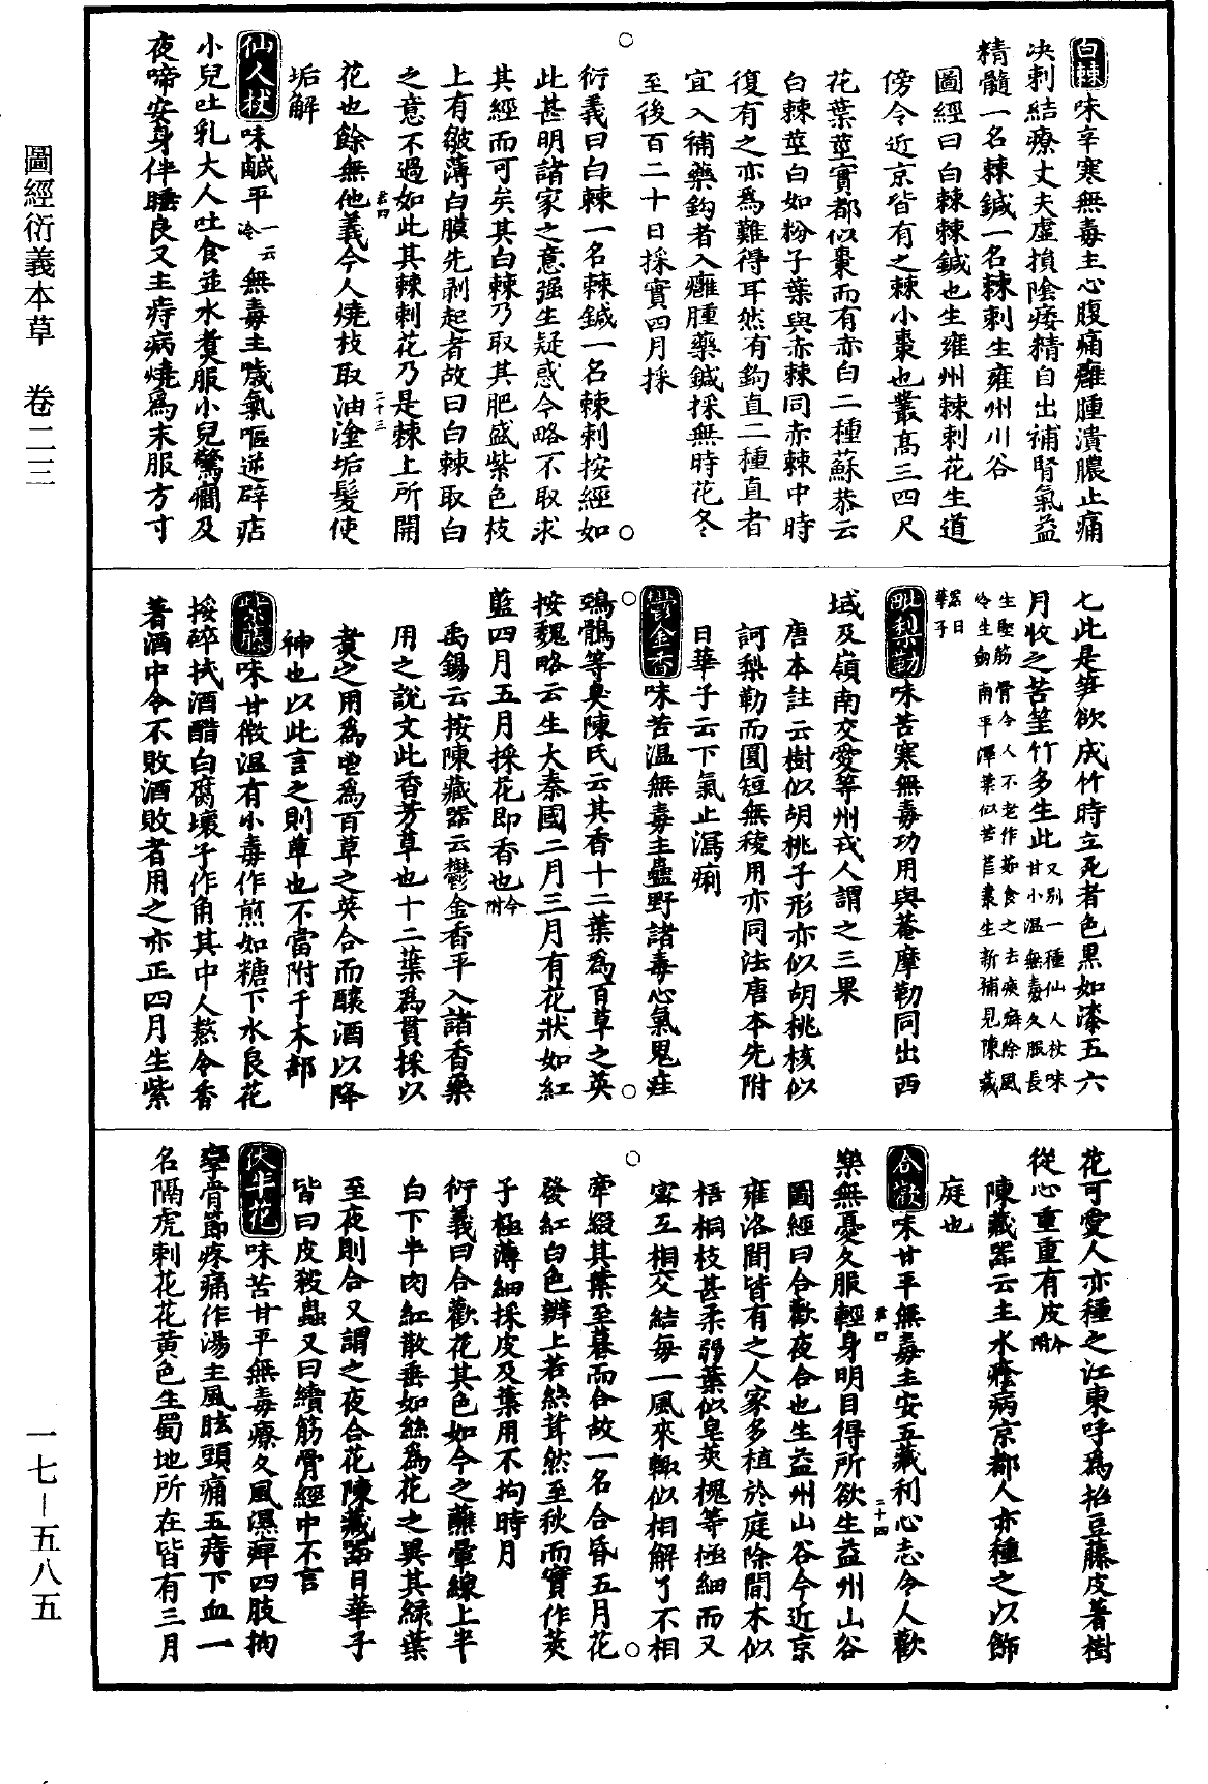 圖經衍義本草 卷二三
一七—五八五
白棘味辛寒無毒主心腹痛癰腫潰膿止痛
决刺結療丈夫虛損陰痿精自出補腎氣益
精髓一名棘鍼一名棘刺生雍州川谷
圖經曰白棘棘鍼也生雍州棘刺花生道
傍今近京皆有之棘小棗也叢高三四尺
花葉莖實都似棗而有赤白二種蘇恭云
白棘莖白如粉子葉與赤棘同赤棘中時
復有之亦為難得耳然有鈎直二種直者
宜入補藥鈎者入癰腫藥鍼採無時花冬
至後百二十日採實四月採
衍義曰白棘一名棘鍼一名棘刺按經如
此甚明諸家之意强生疑惑今略不取求
其經而可矣其白棘乃取其肥盛紫色枝
上有皺薄白膜先剥起者故曰白棘取白
之意不過如此其棘刺花乃是棘上所開
若四
二十三
花也餘無他義今人燒枝取油塗垢髮使
垢解
仙人杖味鹹平一云冷無毒主噦氣嘔逆辟痁
小兒吐乳大人吐食並水煮服小兒驚癇及
夜啼安身伴睡良又主痔病燒為末服方寸
七此是笋欲成竹時立死者色黑如漆五六
月收之苦䇞竹多生此又别一種仙人杖味甘小温無毒久服長
生堅筋骨令人不老作茹食之去痰癖除風
冷生劒南平澤葉似苦苣叢生新補見陳藏
器日華子
毗梨勒味苦寒無毒功用與菴摩勒同出西
域及嶺南交愛等州戎人謂之三果
唐本註云樹似胡桃子形亦似胡桃核似
訶梨勒而圓短無稜用亦同法唐本先附
日華子云下氣止瀉痢
鬱金香味苦温無毒主蠱野諸毒心氣鬼疰
鵶鶻等臭陳氏云其香十二葉為百草之英
按魏略云生大秦國二月三月有花狀如紅
藍四月五月採花即香也今附
禹錫云按陳藏器云鬱金香平入諸香藥
用之說文此香芳草也十二葉為貫採以
煮之用為鬯為百草之英合而釀酒以降
神也以此言之則草也不當附于木部
紫藤味甘微温有小毒作煎如糖下水良花
挼碎拭酒醋白腐壞子作角其中人熬令香
著酒中令不敗酒敗者用之亦正四月生紫
花可愛人亦種之江東呼為招豆藤皮著樹
從心重重有皮今附
陳藏器云主水癊病京都人亦種之以飾
庭也
合歡味甘平無毒主安五藏利心志令人歡
若四
二十四
樂無憂久服輕身明目得所欲生益州山谷
圖經曰合歡夜合也生益州山谷今近京
雍洛間皆有之人家多植於庭除間木似
梧桐枝甚柔弱葉似皁莢槐等極細而又
密互相交結每一風來輙似相解了不相
牽綴其葉至暮而合故一名合昏五月花
發紅白色瓣上若絲茸然至秋而實作莢
子極薄細採皮及葉用不拘時月
衍義曰合歡花其色如今之蘸暈線上半
白下半肉紅散垂如絲為花之異其緑葉
至夜則合又謂之夜合花陳藏器日華子
皆曰皮殺蟲又曰續筋骨經中不言
伏牛花味苦甘平無毒療久風濕痺四肢拘
攣骨節疼痛作湯主風眩頭痛五痔下血一
名隔虎刺花花黄色生蜀地所在皆有三月